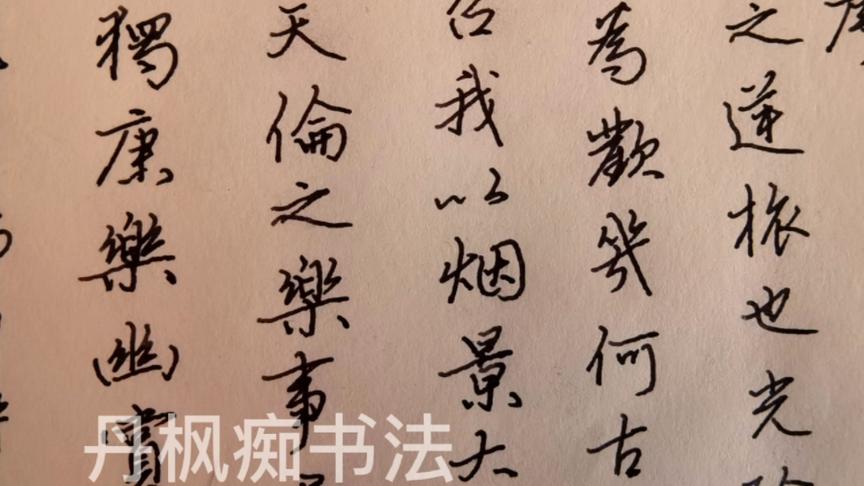 之逆旅也光
為歡幾何古
召我以烟景大
天倫之樂事
獨康樂幽賞
丹枫痴书法